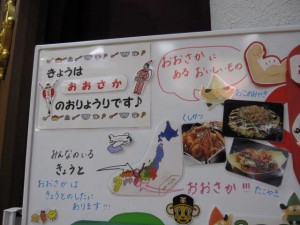 きょうは
おおさか
のおりょうりです♪
おおさかに
ある おいしいもの
おこのみやき
くしかつ
みんなのいる
きょうと
おおさかは
きょうとのしたに
あります!!!
おおさか!!!
たこやき